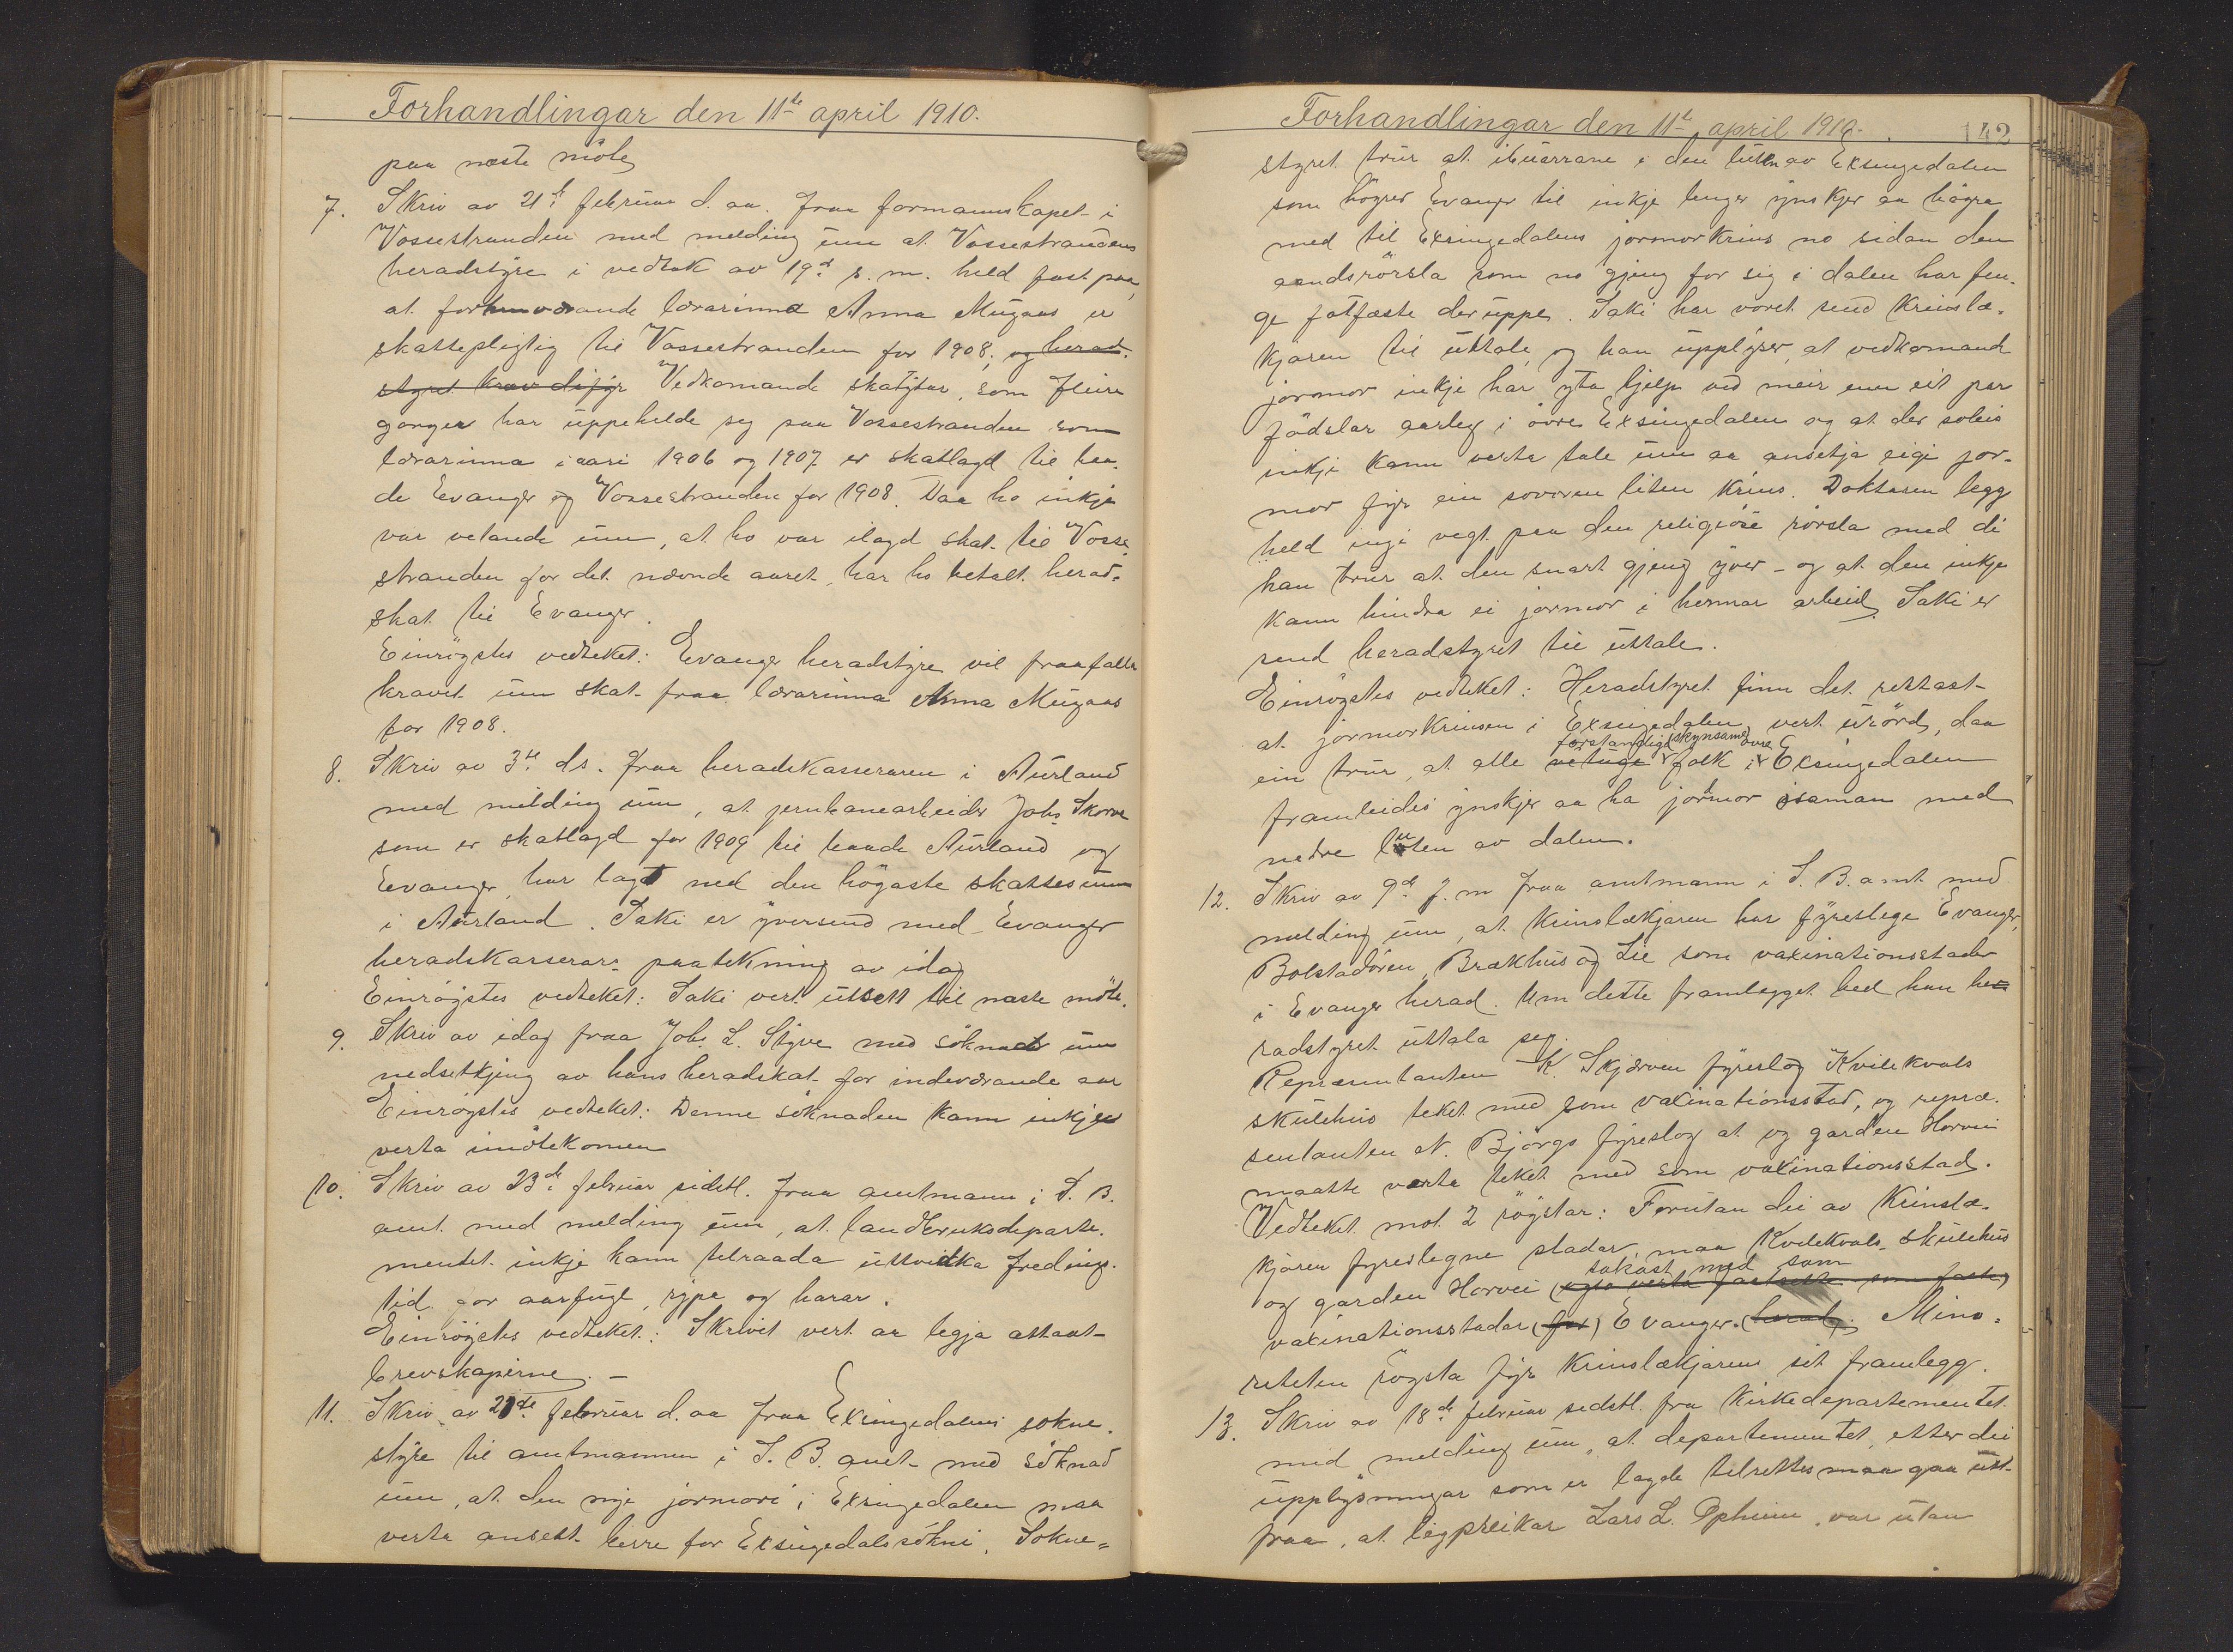 Forhandlingar den 11te april 1910.
paa næste möte
7. Skriv av 21de februar d. aa. fraa formannskapet i
Vossestranden med melding um at Vossestrandens
heradstyre i vedtak av 19de s. m. held fast paa,
at forhenværande lærarinna Anna Mugaas er
skattepligtig til Vossestranden for 1908, og herad-
styret krav difyr Vedkomande skatytar, som fleire
gonger har uppehelde seg paa Vossestranden som
lærarinna i aari 1906 og 1907 er skatlagd til baa-
de Evanger og Vossestranden for 1908. Daa ho inkje
var vetande um, at ho var ilagd skat til Vosse-
stranden for det nævnde aaret, har ho betalt herad-
skat til Evanger.
Einrøystes vedteket: Evanger heradstyre vil fraafalla
kravet um skat fraa lærarinna Anna Mugaas
for 1908.
8. Skriv av 3de ds. fraa heradskasseraren i Aurland
med melding um, at jernbanearbeider Johs Skorve
som er skatlagd for 1909 til baade Aurland og
Evanger, har lagt ned den högaste skattesum
i Aurland. Saki er yversend med Evanger
heradskasserars paatekning av idag
Einrøystes vedteket: Saki vert utsett til næste möte.
9. Skriv av idag fraa Johs. L. Styve med söknad um
nedsetkjing av hans heradskat for indeværande aar
Einrøystes vedteket: Denne söknaden kann inkje
verta imötekomen
10. Skriv av 23de februar sidstl. fraa amtmann i S. B.
amt med melding um, at landbruksdeparte-
mentet inkje kann tilraada utvidka frednings-
tid for aarfugl, rype og harar.
Einrøystes vedteket: Skrivet vert aa legja attaat
brevskapirne. -
11. Skriv av 21de februar d. aa fraa Exingedalens sokne-
styre til amtmannen i S. B. amt med söknad
um, at den nye jormori i Exingedalen maa
verta ansett berre for Exingedals sökni. Sokne-
Forhandlingar den 11te april 1910. 142
styret trur at ibuarrane i den luten av Exingedalen
som höyrer Evanger til inkje lenger ynskjer aa höyra
med til Exingedalens jormorkrins no sidan den
aandsrörsla som no gjeng for sig i dalen har fen-
ge fotfæste der uppe. Saki har voret send krinslæ-
kjaren til uttale, og han upplyser, at vedkomand
jormor inkje har yta hjelp ved meir enn eit par
födslar aarleg i övre Exingedalen og at der soleis
inkje kann verta tale um aa ansetja eigi jor-
mor fyr ein sovoren liten krins. Doktaren legg
held ingi vegt paa den religiöse rörsla med di
han trur at den snart gjeng yver - og at den inkje
kann hindra ei jormor i hennar arbeid. Saki er
send heradstyret til uttale.
Einrøystes vedteket: Heradstyret finn det rettast
at jormorkrinsen i Exingedalen vert urörd, daa
forstandige skynsame övre
ein trur, at alle vituge folk i Exingedalen
framleides ynskjer aa ha jormor saman med
nedre luten av dalen.
12. Skriv av 9de f. m fraa amtmann i S. B. amt med
melding um, at krinslækjaren har fyreslege Evanger,
Bolstadören, Brækhus og Lie som vaxinationsstader
i Evanger herad. Um dette framlegget bed han he-
radstyret uttala seg.
Repræsentanten K. Skjærven fyreslog Kvilekvals
skulehus teket med som vaxinationsstad, og repræ-
sentanten N. Björgo fyreslog at og garden Horvei
maatte verta teket med som vaxinationsstad.
Vedteket mot 2 röystar: Forutan dei av krinslæ-
kjaren fyreslegne stadar, maa Kvilekvals skulehus
takast med som
og garden Horvei (ogso verta fastsette som faste)
vaxinationsstadar (for) Evanger. (herad). Mino-
riteten röysta fyr krinslækjarens sit framlegg.
13. Skriv av 18de februar sidstl. fra Kirkedepartementet
med melding um, at departementet, etter dei
upplysningar som er lagde tilrettes maa gaa utt-
fraa, at legpreikar Lars L. Opheim, var utan